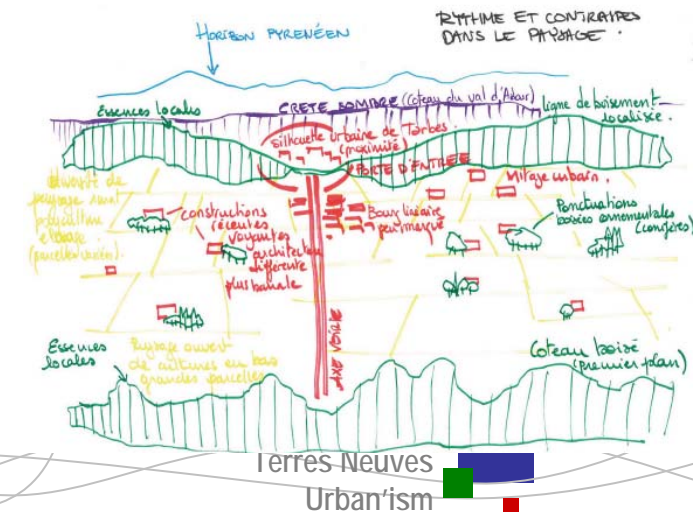 RYTHME ET CONTRASTES
DANS LE PAYSAGE.
HORIZON PYRENÉEN
Essences locales
CRETE SOMBRE (Coteau du val d'Adour)
ligne de boisement
localisée.
Silhouette urbaine de Tarbes.
(proximité)
PORTE D'ENTRÉE
Mitage urbain.
paysage
polyculture
(parcelles
constructions
récentes
voyantes
architecture
différente
plus banale
Bourg linéaire
peu marqué
Ponctuations
boisées ornementales
(conifères)
AXE VOIRIE
Essences
locales
Paysage ouvert
de cultures en bas
grandes parcelles
Coteau boisé
(premier plan)
Terres Neuves
Urban'ism